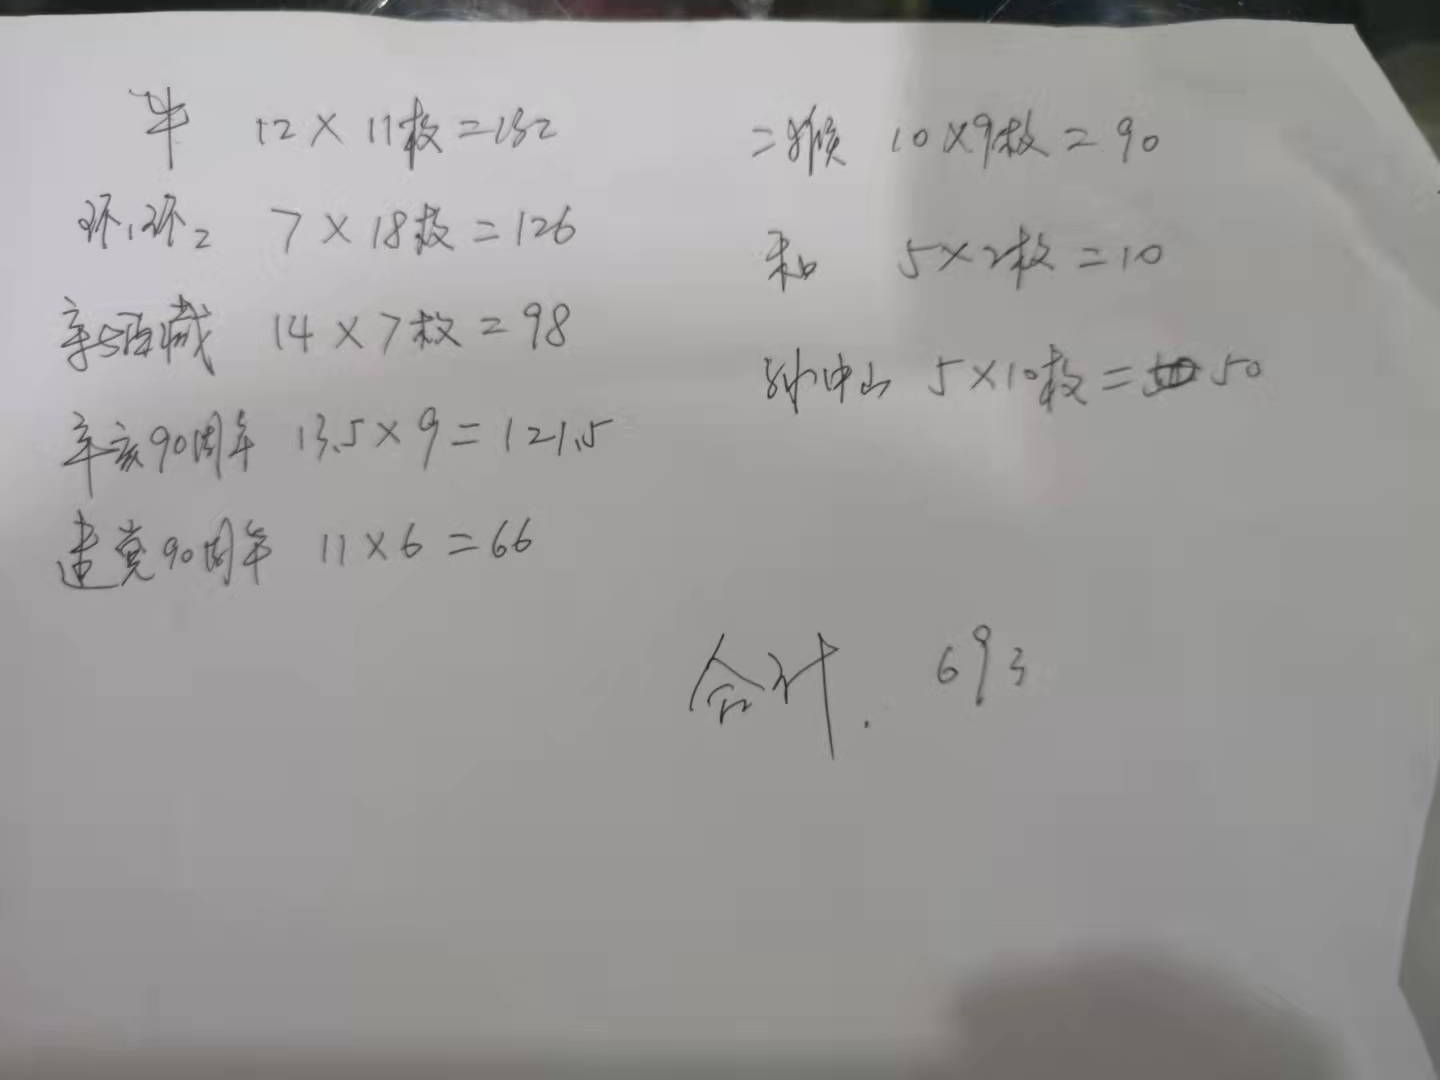 羊 12×11枚=132
环1环2 7×18枚=126
西藏 14×7枚=98
辛亥90周年 13.5×9=121.5
建党90周年 11×6=66
二猴 10×9枚=90
和 5×2枚=10
孙中山 5×10枚=50
合计. 693